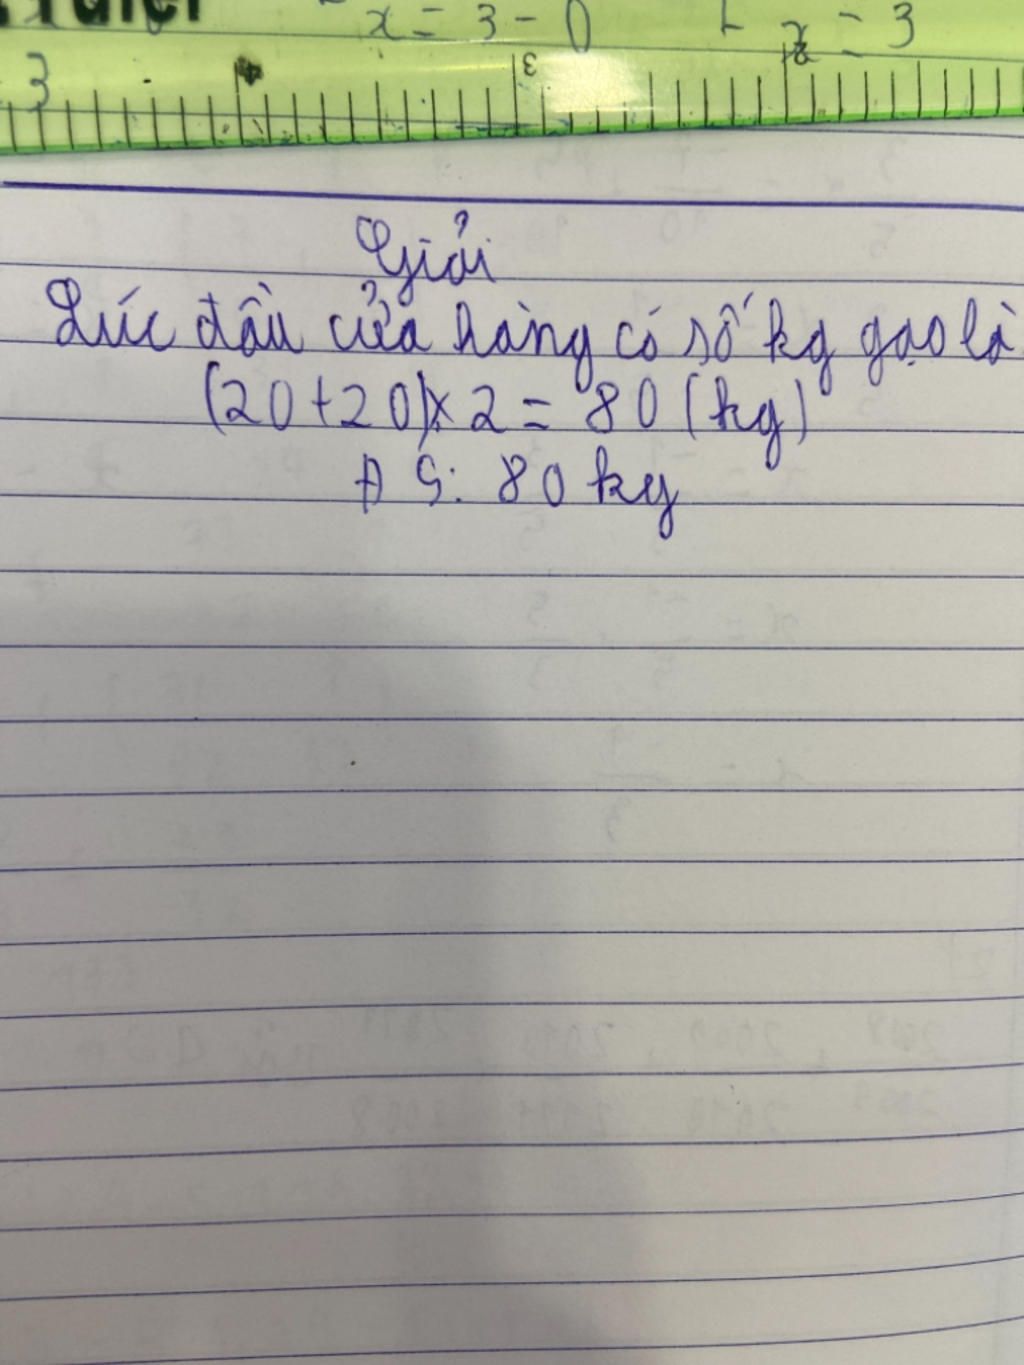 x = 3 - 0
x = 3
3
4
3
2
Giải
Lúc đầu cửa hàng có số kg gạo là
(20+20)x 2 = 80 (kg)
Đ S: 80 kg